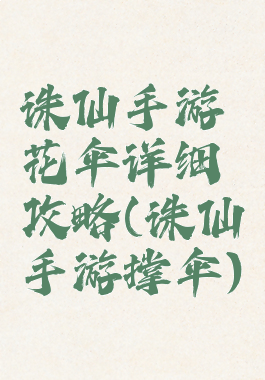 诛仙手游
花伞详细
攻略(诛仙
手游撑伞)